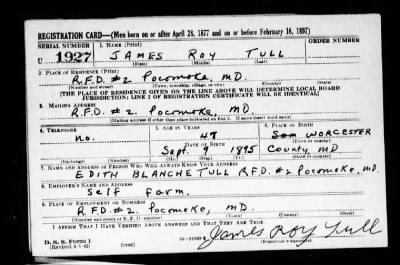 REGISTRATION CARD—(Men born on or after April 28, 1877 and on or before February 16, 1897)
SERIAL NUMBER 1. NAME (Print) ORDER NUMBER
U 1927 JAMES ROY TULL
(First) (Middle) (Last)
2. PLACE OF RESIDENCE (Print)
R.F.D. #2 Pocomoke, MD.
(Number and street) (Town, township, village, or city) (County) (State)
[THE PLACE OF RESIDENCE GIVEN ON THE LINE ABOVE WILL DETERMINE LOCAL BOARD
JURISDICTION; LINE 2 OF REGISTRATION CERTIFICATE WILL BE IDENTICAL]
3. MAILING ADDRESS
R.F.D. #2. Pocomoke, MD
[Mailing address if other than place indicated on line 2. If same insert word same]
4. TELEPHONE 5. AGE IN YEARS 6. PLACE OF BIRTH
no. 47 WORCESTER
DATE OF BIRTH (Town or county)
Sept. 9 1895 County, MD.
(Mo.) (Day) (Yr.) (State or country)
7. NAME AND ADDRESS OF PERSON WHO WILL ALWAYS KNOW YOUR ADDRESS
EDITH BLANCHE TULL R.F.D. #2 Pocomoke, MD.
8. EMPLOYER'S NAME AND ADDRESS
Self Farm.
9. PLACE OF EMPLOYMENT OR BUSINESS
R.F.D. #2. Pocomoke, MD.
(Number and street or R. F. D. number) (Town) (County) (State)
I AFFIRM THAT I HAVE VERIFIED ABOVE ANSWERS AND THAT THEY ARE TRUE.
D. S. S. Form 1 James Roy Tull
(Revised 4-1-42) (over) (Registrant's signature)